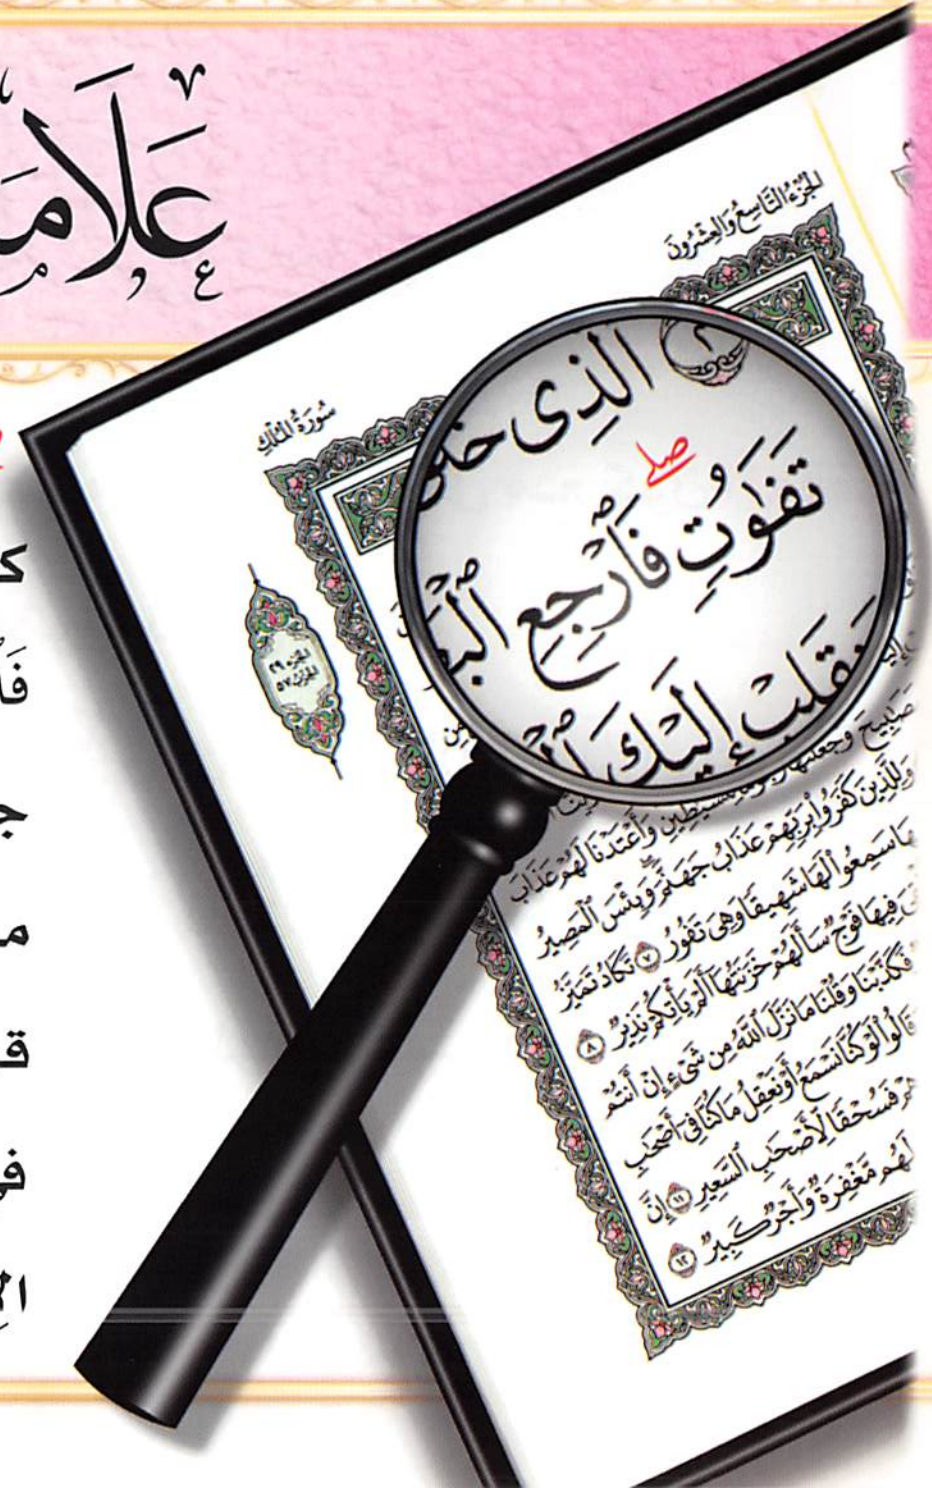 عَلَامَ
الجُزْءُ التَّاسِعُ وَالعِشْرُونَ
سُورَةُ المُلْكِ
الَّذِى خَلَقَ
صلى
تَفَٰوُتٍ فَٱرْجِعِ ٱلْبَ
يَنقَلِبْ إِلَيْكَ ٱلْ
الجزء ٢٩
الحزب ٥٧
وَجَعَلْنَٰهَا
لِّلشَّيَٰطِينِ وَأَعْتَدْنَا لَهُمْ عَذَابَ
وَلِلَّذِينَ كَفَرُوا۟ بِرَبِّهِمْ عَذَابُ جَهَنَّمَ وَبِئْسَ ٱلْمَصِيرُ
سَمِعُوا۟ لَهَا شَهِيقًا وَهِىَ تَفُورُ ٧ تَكَادُ تَمَيَّزُ
فِيهَا فَوْجٌ سَأَلَهُمْ خَزَنَتُهَآ أَلَمْ يَأْتِكُمْ نَذِيرٌ ٨
فَكَذَّبْنَا وَقُلْنَا مَا نَزَّلَ ٱللَّهُ مِن شَىْءٍ إِنْ أَنتُمْ
قَالُوا۟ لَوْ كُنَّا نَسْمَعُ أَوْ نَعْقِلُ مَا كُنَّا فِىٓ أَصْحَٰبِ
فَسُحْقًا لِّأَصْحَٰبِ ٱلسَّعِيرِ ١١ إِنَّ
لَهُم مَّغْفِرَةٌ وَأَجْرٌ كَبِيرٌ ١٢